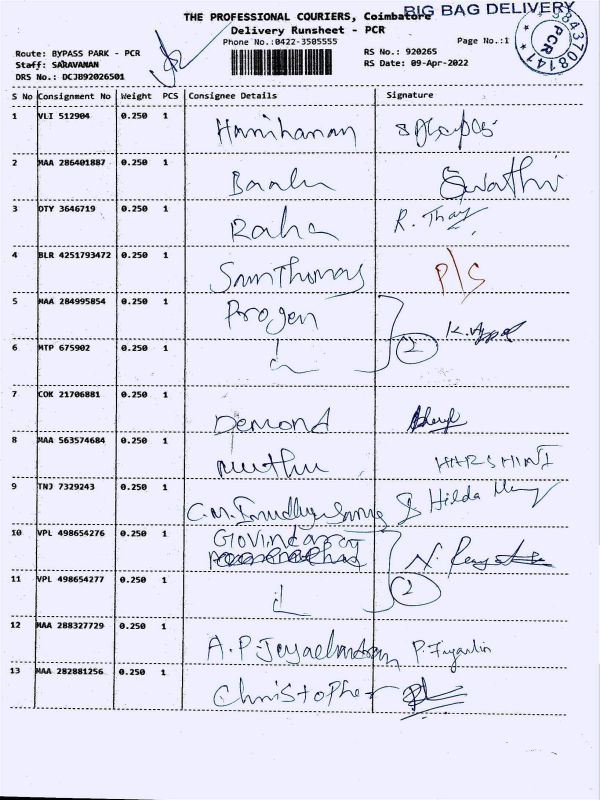 BIG BAG DELIVERY
THE PROFESSIONAL COURIERS, Coimbatore
Delivery Runsheet - PCR
Phone No.:0422-3505555
Page No.:1
9843708141
PCR
Route: BYPASS PARK - PCR
RS No.: 920265
Staff: SARAVANAN
RS Date: 09-Apr-2022
DRS No.: DCJB92026501
S No Consignment No Weight PCS Consignee Details Signature
1 VLI 512904 0.250 1 Harriharan
2 MAA 286401887 0.250 1 Swathi
3 OTY 3646719 0.250 1 R.
4 BLR 4251793472 0.250 1 Samthomas P/S
5 MAA 284995854 0.250 1 Progen
6 MTP 675902 0.250 1 2
7 COK 21706881 0.250 1 Demond
8 MAA 563574684 0.250 1 Muthu HARSHINI
9 TNJ 7329243 0.250 1 C.M. Hilda
10 VPL 498654276 0.250 1 N.
11 VPL 498654277 0.250 1 2
12 MAA 288327729 0.250 1 A.P. P.
13 MAA 282881256 0.250 1 Christopher